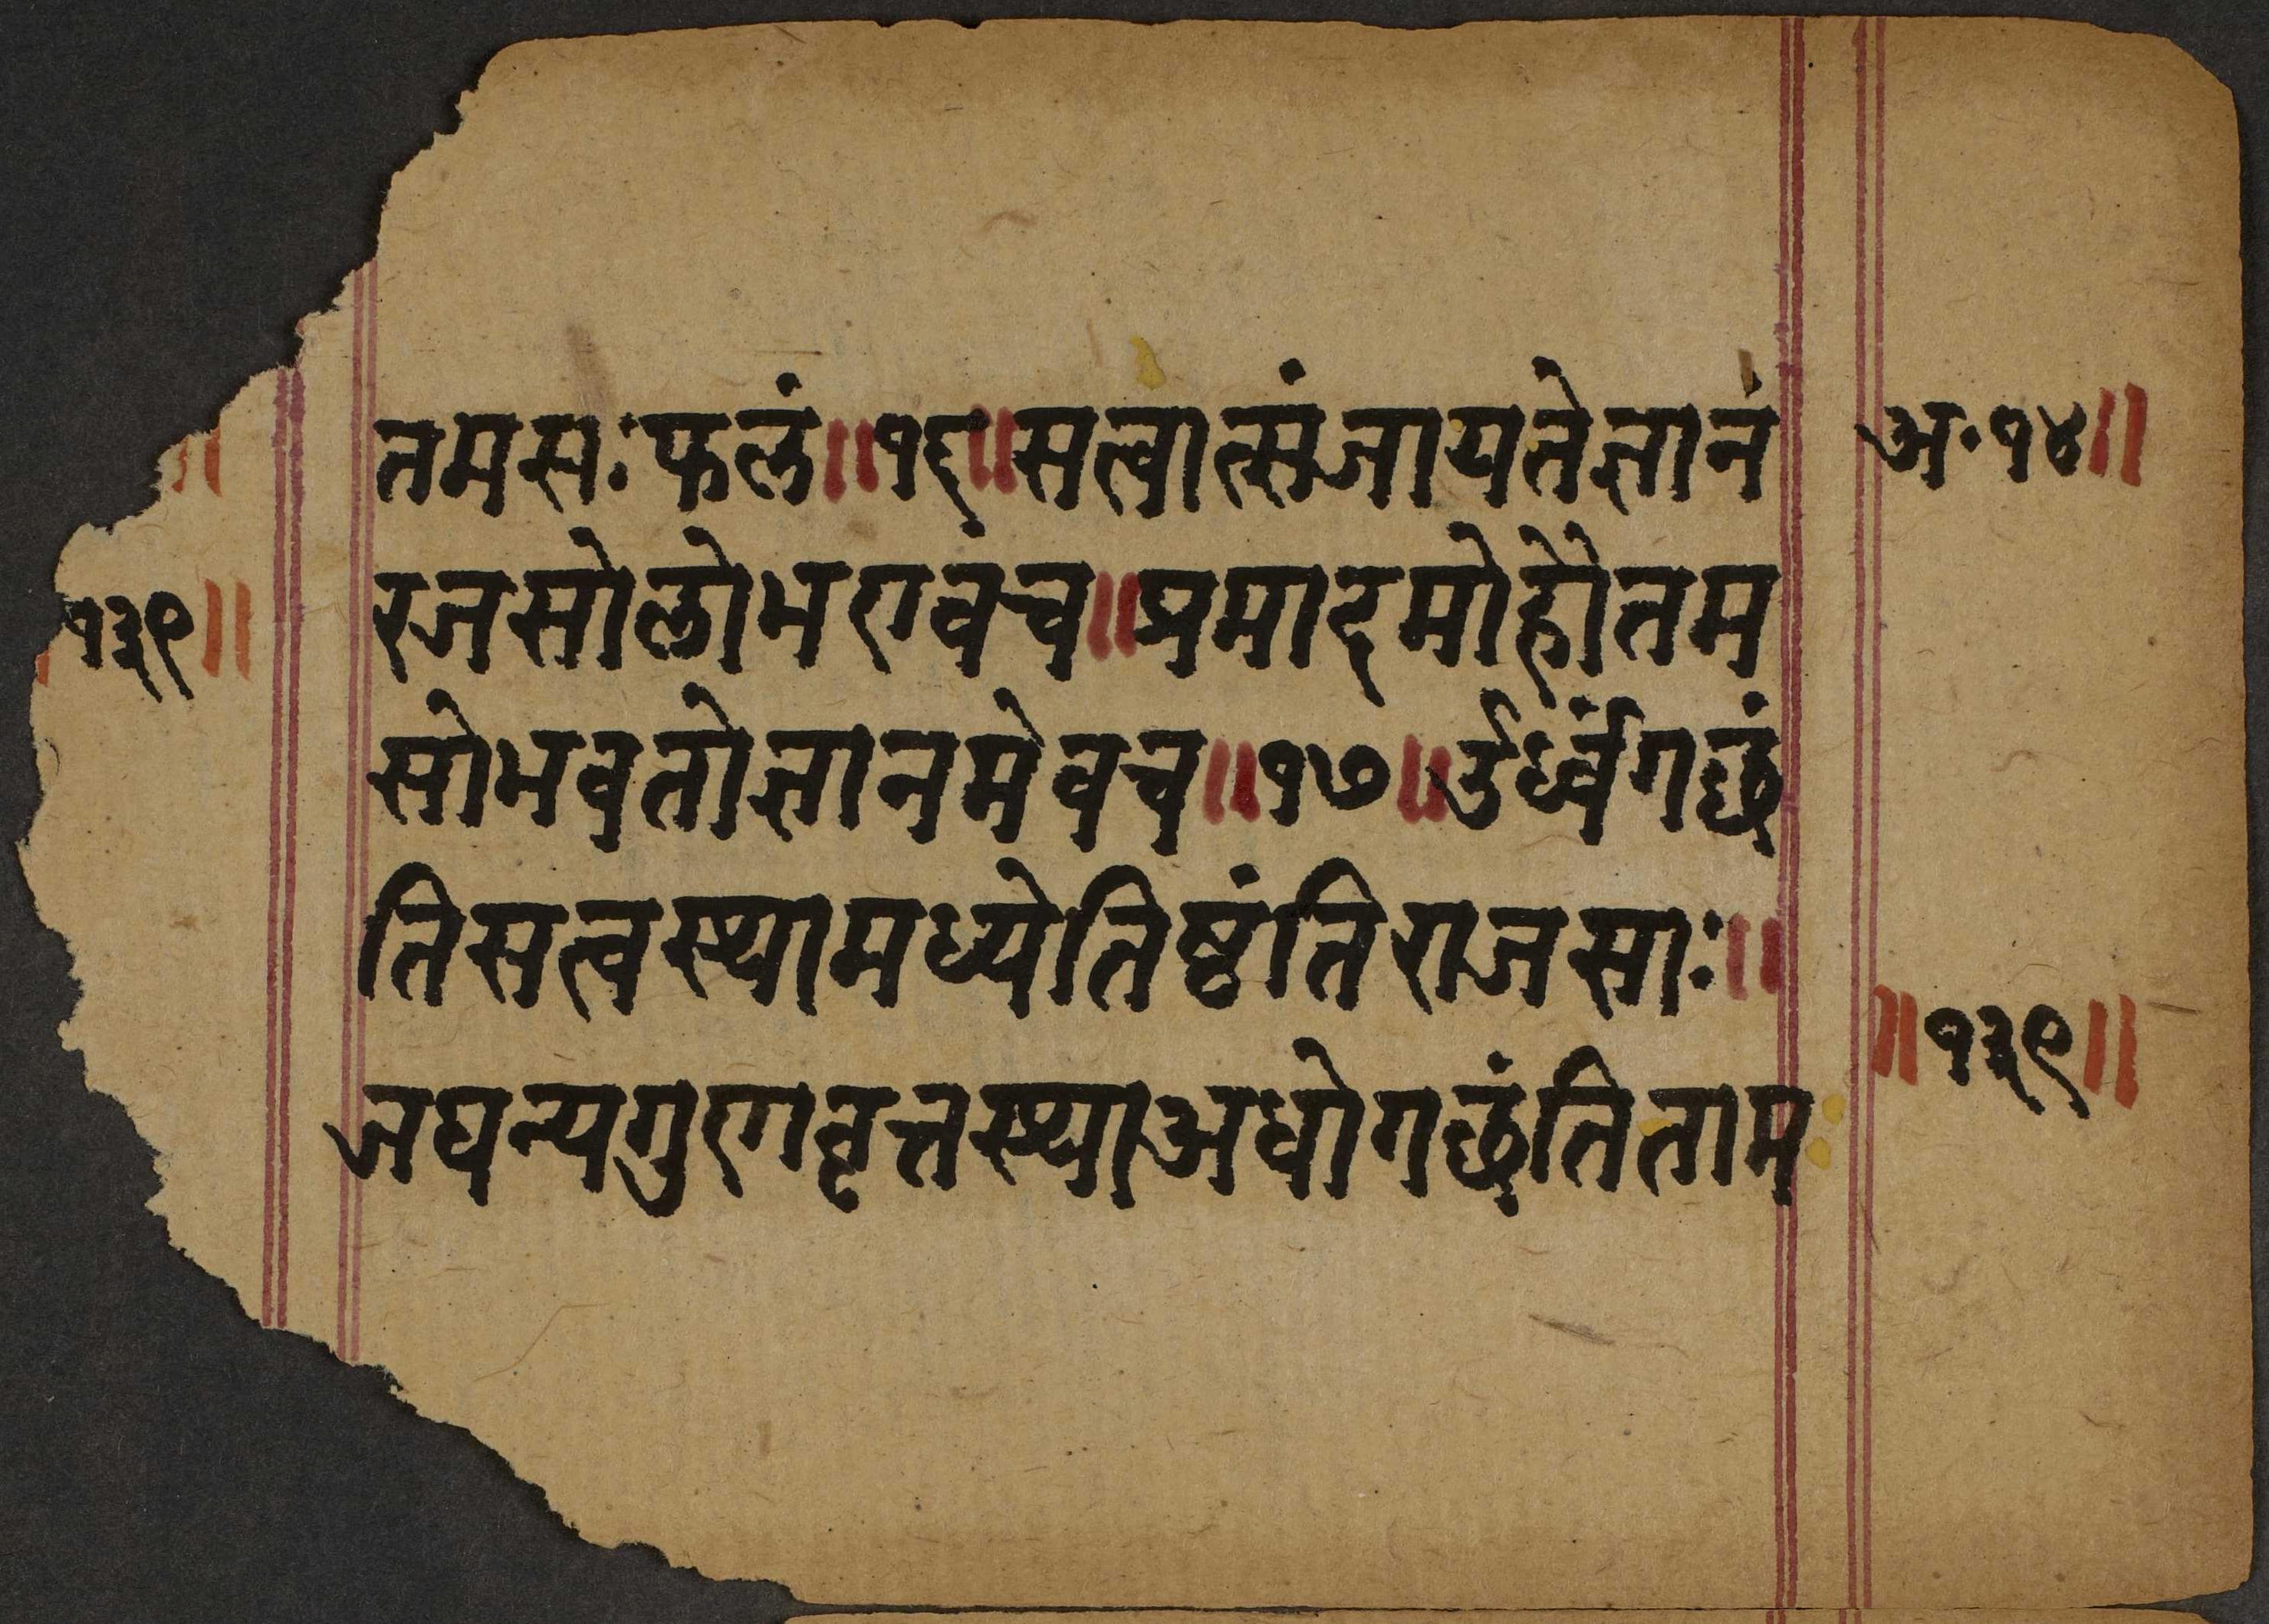 तमसःफलं॥१६॥सत्वात्संजायतेज्ञानं
रजसोलोभएवच॥प्रमादमोहौतम
सोभवतोज्ञानमेवच॥१७॥उर्ध्वंगछं
तिसत्वस्थामध्येतिष्ठंतिराजसाः॥
जघन्यगुणवृत्तस्थाअधोगछंतिताम
अ॰१४॥
॥१३९॥
॥
१३९॥